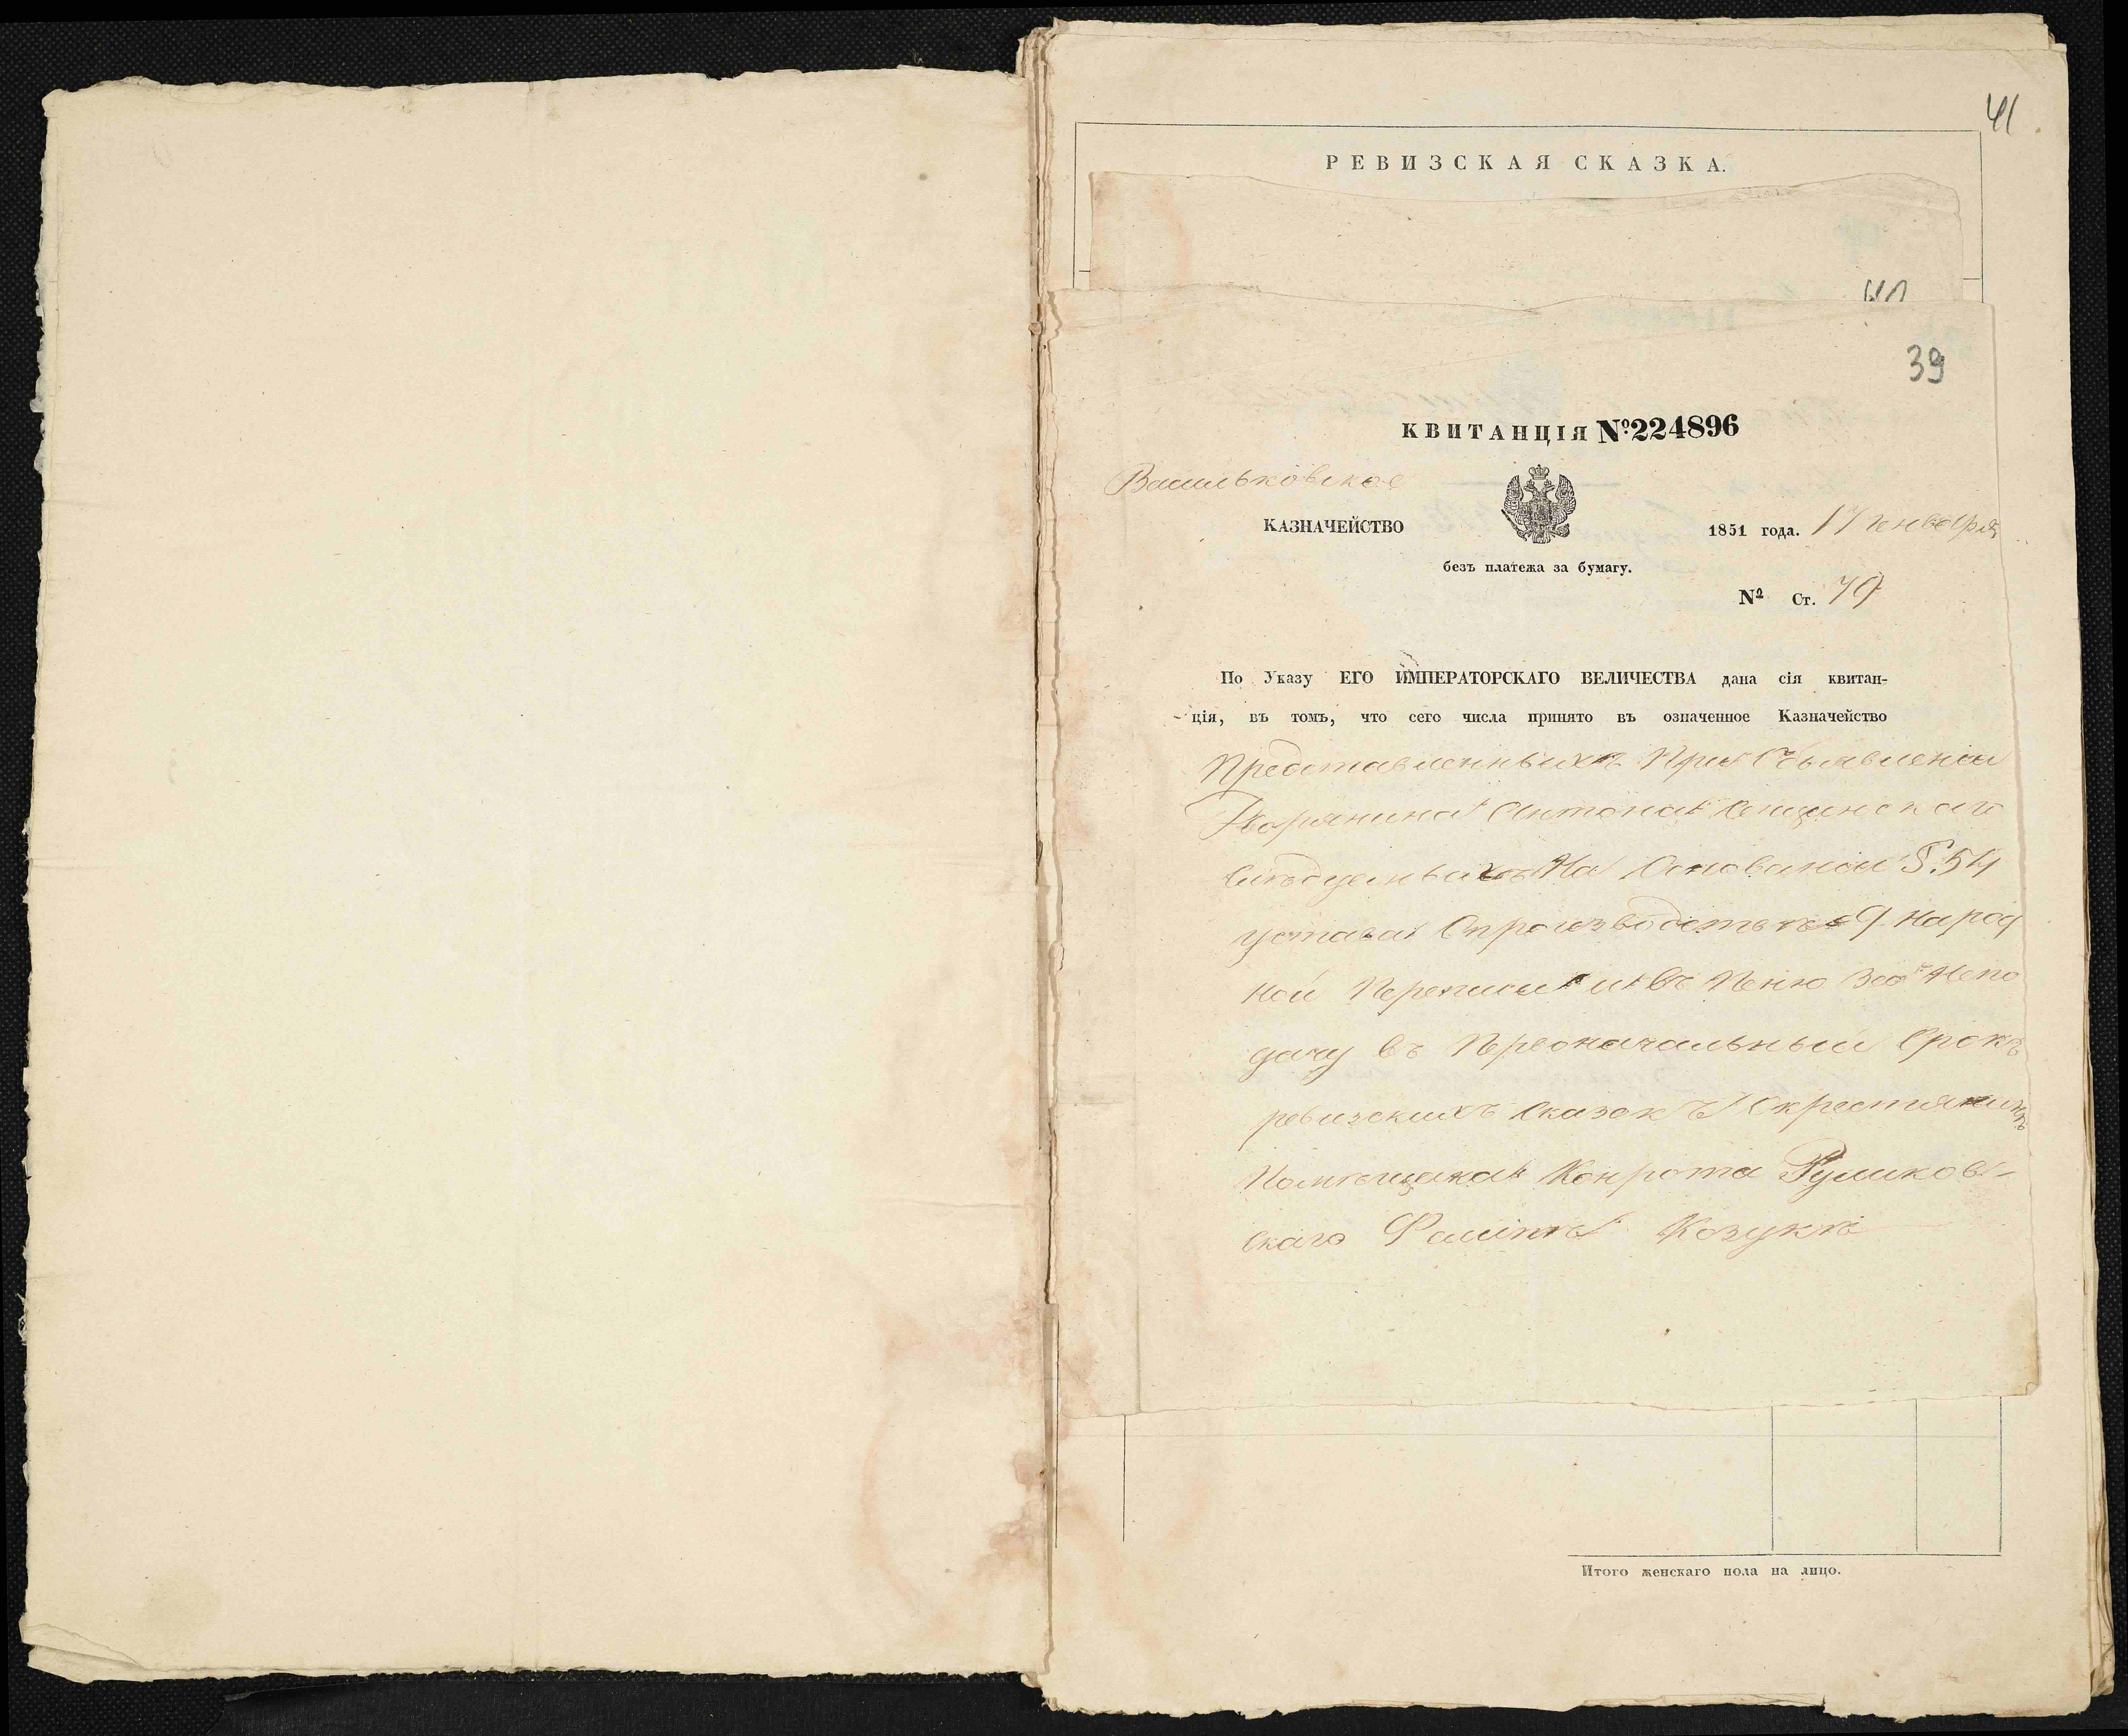 41
РЕВИЗСКАЯ СКАЗКА.
40
39
КВИТАНЦІЯ №224896
Васильковское
КАЗНАЧЕЙСТВО
1851 года. 17 генваря
безъ платежа за бумагу.
№ Ст. 79
По Указу ЕГО ИМПЕРАТОРСКАГО ВЕЛИЧЕСТВА дана сія квитан-
ція, въ томъ, что сего числа принято въ означенное Казначейство
Представленныхъ При Объявленіи
Дворянина Антона
Слѣдуемыхъ На Основаніи §. 54
устава Опроизводствѣ 9 народ
ной Переписи въ Пеню За Непо
дачу въ Первоначальный Срокъ
ревизскихъ Сказокъ Окрестянинѣ
Помѣщика Конрота Руликов-
скаго Козукѣ
Итого женскаго пола на лицо.